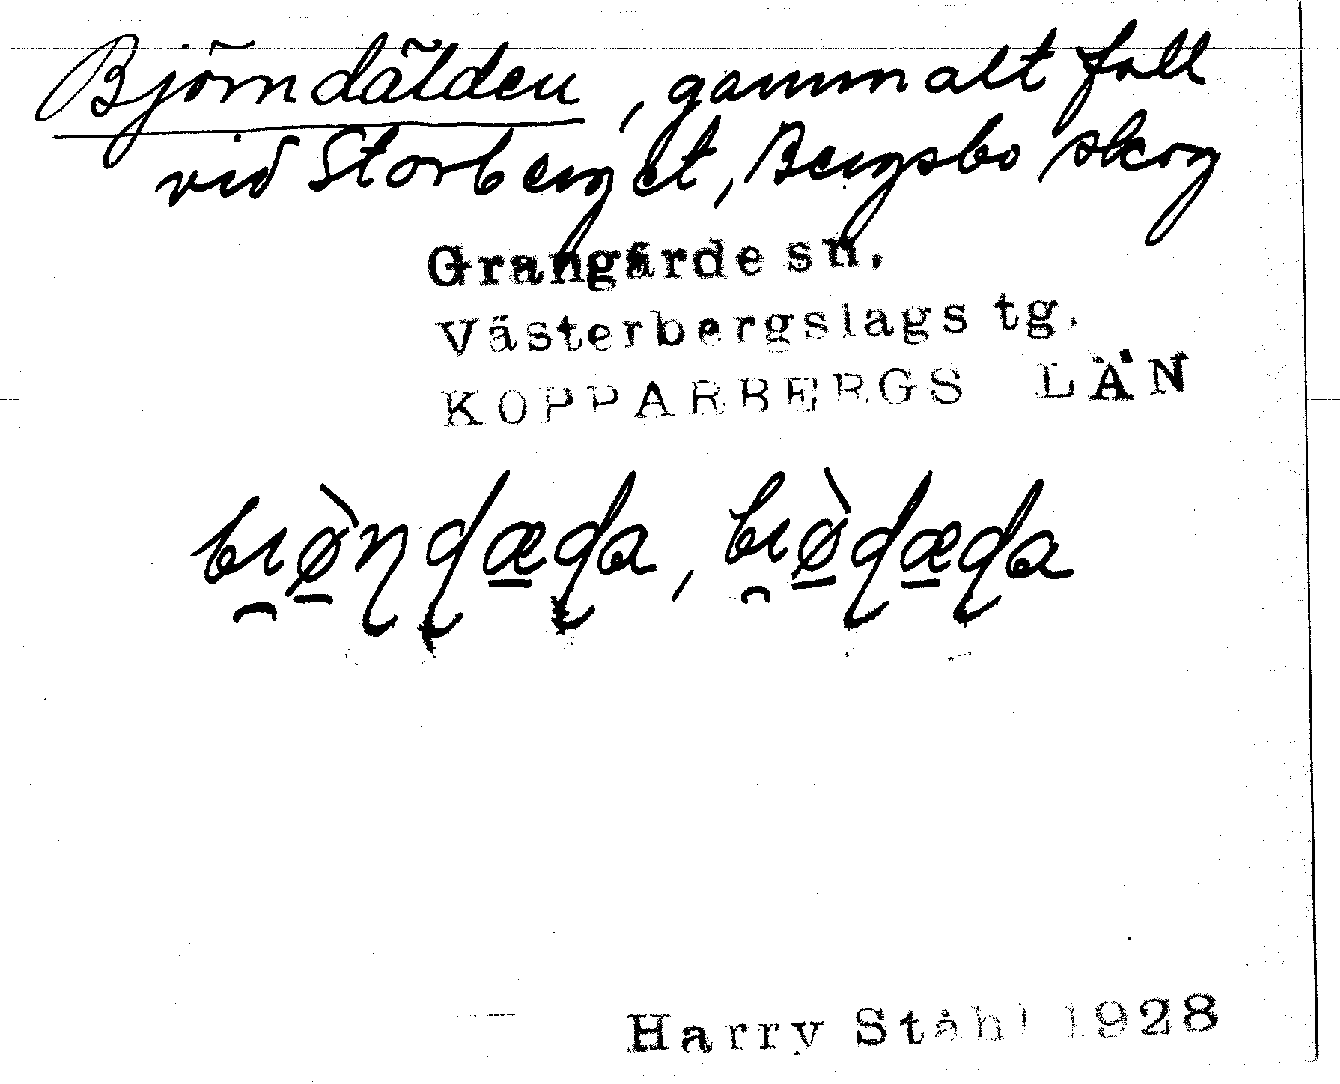 Björndälden, gammalt fall
vid Storberget, Bergsbo skog
Grangärde sn.
Västerbergslags tg.
KOPPARBERGS LÄN
bı̯ø̠̀ɳɖæ̠ɖa, bı̯ø̠̀ɖæ̠ɖa
Harry Ståhl 1928